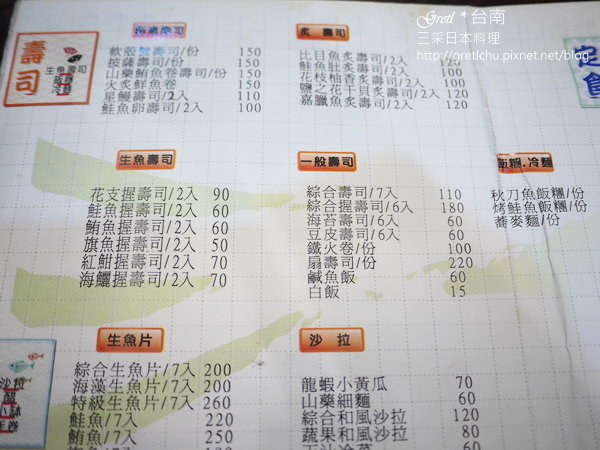 Gretl * 台南
三采日本料理
http://gretlchu.pixnet.net/blog
壽司
生魚壽司
飯糰
冷麵
壽司
軟殼蟹壽司/份 150
披薩壽司/份 150
山藥鮪魚卷壽司/份 150
火炙鮮魚卷 150
星鰻壽司/2入 110
鮭魚卵壽司/2入 100
炙 壽司
比目魚炙壽司/2入 120
鮭魚肚炙壽司/2入 100
花枝柚香炙壽司/2入 100
鹽之花干貝炙壽司/2入 120
嘉臘魚炙壽司/2入 120
生魚壽司
花支握壽司/2入 90
鮭魚握壽司/2入 60
鮪魚握壽司/2入 60
旗魚握壽司/2入 50
紅魽握壽司/2入 70
海鱺握壽司/2入 70
一般壽司
綜合壽司/7入 110
綜合握壽司/6入 180
海苔壽司/6入 60
豆皮壽司/6入 60
鐵火卷/份 100
扇壽司/份 220
鹹魚飯 60
白飯 15
飯糰.冷麵
秋刀魚飯糰/份
烤鮭魚飯糰/份
蕎麥麵/份
沙拉
醋
小缽
手卷
生魚片
綜合生魚片/7入 200
海藻生魚片/7入 200
特級生魚片/7入 260
鮭魚/7入 220
鮪魚/7入 250
沙拉
龍蝦小黃瓜 70
山藥細麵 60
綜合和風沙拉 120
蔬果和風沙拉 80
60